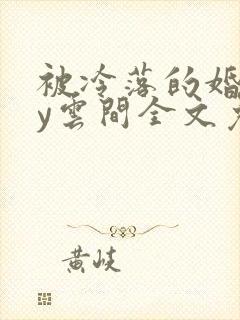 被冷落的婚
y雲間全文
黄岐